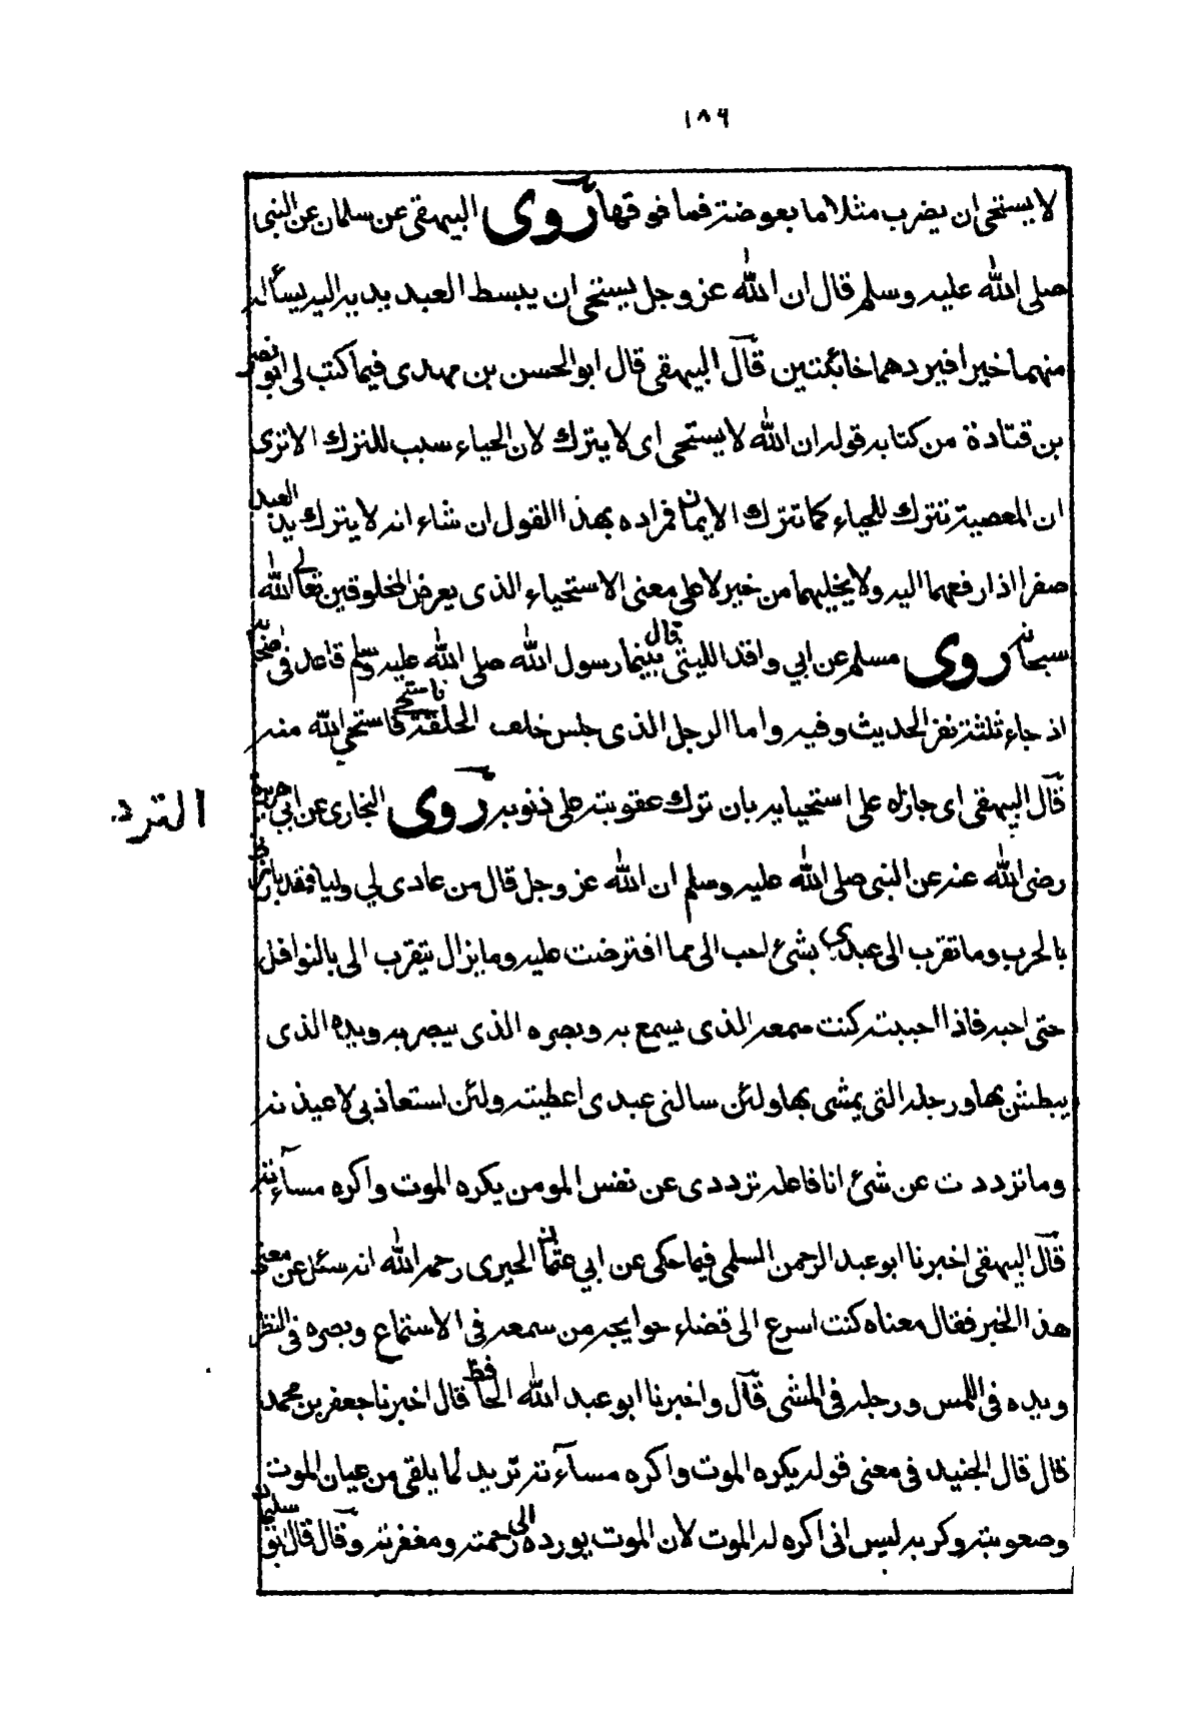 ١٨٩
لا يستحيى ان يضرب مثلا ما بعوضة فما فوقها روى البيهقى عن سلمان عن النبى
صلى الله عليه وسلم قال ان الله عز وجل يستحى ان يبسط العبد يديه اليه يسأله
منهما خيرا فيردهما خائبتين قال البيهقى قال ابو الحسن بن مهدى فيما كتب لى ابو نصر
بن قتادة من كتابه قوله ان الله لا يستحى اى لا يترك لان الحياء سبب للترك الا ترى
ان المعصية تترك للحياء كما تترك الايمان فمراده بهذا القول ان شاء انه لا يترك يد العبد
صفرا اذا رفعهما اليه ولا يخليهما من خير لا على معنى الاستحياء الذى يعرض المخلوقين تعالى الله
سبحانه روى مسلم عن ابي واقد الليثى قال بينما رسول الله صلى الله عليه وسلم قاعد فى
اذ جاء ثلثة نفر الحديث وفيه واما الرجل الذى جلس خلف الحلقة فاستحى فاستحي الله منه
قال البيهقى اى جازاه على استحيايه بان ترك عقوبته على ذنوبه روى البخارى عن ابي هريرة
الترد
رضى الله عنه عن النبى صلى الله عليه وسلم ان الله عز وجل قال من عادى لي وليا فقد بارزنى
بالحرب وما تقرب الى عبدي بشئ احب الى مما افترضت عليه وما يزال يتقرب الى بالنوافل
حتى احبه فاذا احببته كنت سمعه الذى يسمع به وبصره الذى يبصر به ويده الذى
يبطش بها ورجله التى يمشى بها ولئن سالنى عبدى اعطيته ولئن استعاذ بى لاعيذنه
وما ترددت عن شئ انا فاعله ترددى عن نفس المومن يكره الموت واكره مسآءته
قال البيهقى اخبرنا ابو عبد الرحمن السلمى فيما حكى عن ابي عثمان الحيرى رحمه الله انه سئل عن معنى
هذا الخبر فقال معناه كنت اسرع الى قضاء حوايجه من سمعه فى الاستماع وبصره فى النظر
ويده فى اللمس ورجله فى المشى قال واخبرنا ابو عبد الله الحافظ قال اخبرنا جعفر بن محمد
قال قال الجنيد فى معنى قوله يكره الموت واكره مسآءته تريد لما يلقى من عيان الموت
وصعوبته وكربه ليس انى اكره له الموت لان الموت يورده الى رحمته ومغفرته وقال قال ابو سليمان